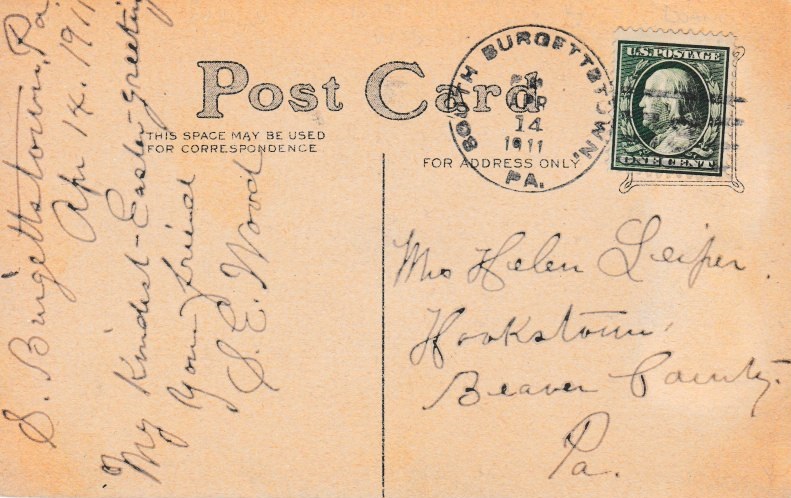 S. Burgettstown, Pa.
Apr 14, 1911
My Kindest Easter greeting
Your friend
S. E. Wood
Post Card
THIS SPACE MAY BE USED
FOR CORRESPONDENCE
FOR ADDRESS ONLY
SOUTH BURGETTSTOWN,
APR
14
1911
PA.
U.S. POSTAGE
ONE CENT
Mrs Helen Leiper.
Hookstown,
Beaver County.
Pa.